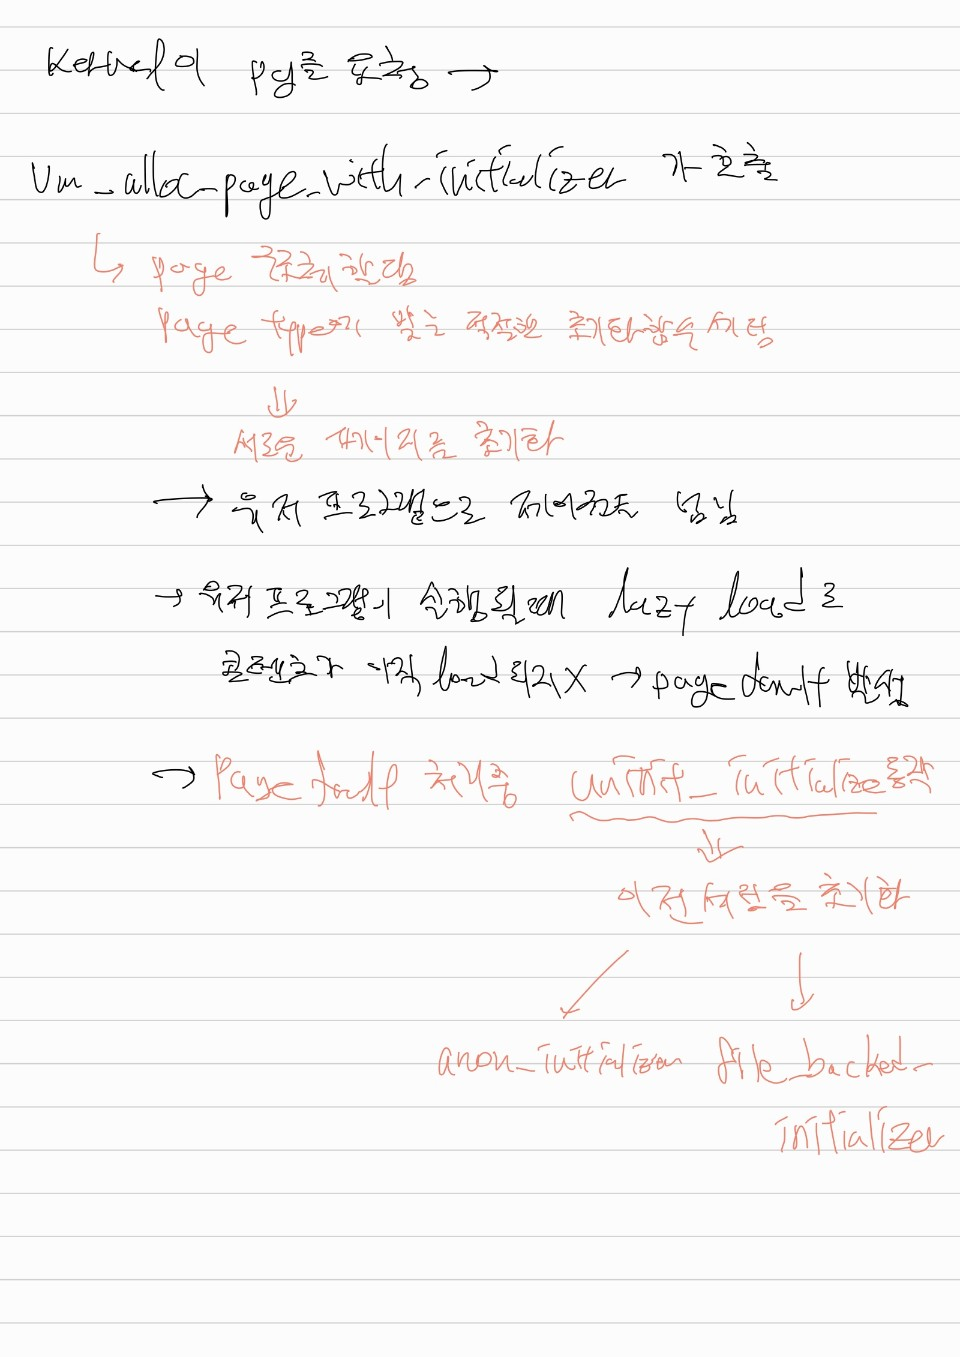 Kernel이 pg를 요청 →
Vm_alloc_page_with_initializer 가 호출
↳ page 구조체 할당
Page type에 맞는 적절한 초기화함수 세팅
↓
새로운 페이지를 초기화
→ 유저 프로그램으로 제어권도 넘님
→ 유저 프로그램이 실행될때 lazy load로
콘텐츠가 아직 load되지X → page fault 발생
→ Page fault 처리중 uninit_initialize동작
↓
이전 세팅을 초기화
anon_initializer file_backed_
initializer